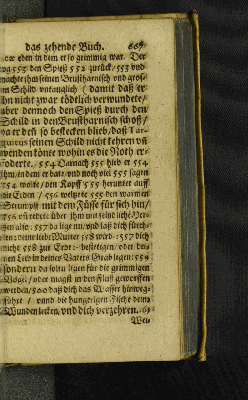 das zehende Buch. 669
vor eben in dem er so grimmig war. Der
zog 551 den Spieß 552 zurück / 553 und
machte ihm seinen Brustharnisch und gros-
sen Schild untauglich ( damit daß er
ihn nicht zwar tödtlich verwundete /
aber dennoch den Spieß durch den
Schild in den Brustharnisch schoß /
da er deñ so bestecken blieb / daß Tar-
quitus seinen Schild nicht kehren uñ
wenden konte wohin es die Noth er-
foderte. 554 Darnach 555 hieb er 554
ihm / in dem er bate / und noch viel sagen
wolte / den Kopff 555 herunter auff
die Erden / 556 weltzete 555 den warmen
Strumpff mit dem Füsse für sich hin /
556 uñ redete über ihm mit feindlichẽ Her-
tzen also: 557 da lige nu / und laß dich fürch-
ten: deine liebe Mutter 558 wird : 557 dich
nicht 558 zur Erde bestetigen / oder dei-
nen Leib in deines Vatern Grab legen: 559
sondern da soltu ligen für die grimmigen
Vögel / oder magst in den Fluß geworffen
werden / 560 daß dich das Wasser hinweg-
führe / und die hungerigen Fische deine
Wunden lecken / und dich verzehren. 561
Wei-